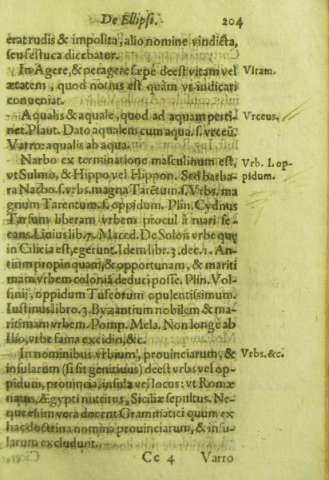 De Ellipsi. 204
erat rudis & impolita, alio nomine vindicta,
seu festuca dicebatur.
In Agere, & peragere sæpe deest vitam vel Vitam.
ætatem, quod notius est quàm vt indicari
conueniat.
Aqualis & aquale, quod ad aquam perti- Vrceus.
net. Plaut. Dato aqualem cum aqua. s. vrceū.
Varro: aqualis ab aqua.
Narbo ex terminatione masculinum est, Vrb. l. op-
vt Sulmo, & Hippo vel Hippon. Sed barba- pidum.
ra Narbo. s. vrbs. magna Tarētum. s. Vrbs. ma
gnum Tarentum. s. oppidum. Plin. Cydnus
Tarsum liberam vrbem procul à mari se-
cans. Liuius lib. 7. Maced. De Solōn vrbe que
in Cilicia est, egerunt. Idem lib. 3. dec. 1. An-
tium propinquam, & opportunam, & mariti
mam vrbem coloniā deduci posse. Plin. Vol-
sinij, oppidum Tuscorum opulentissimum.
Iustinus libro. 3. Byzantium nobilem & ma-
ritimam vrbem. Pomp. Mela. Non longe ab
Ilio, vrbe fama excidij, &c.
In nominibus vrbium, prouinciarum, & Vrbs. &c.
insularum (si sit genitiuus) deest vrbs vel op-
pidum, prouincia, insula vel locus: vt Romæ
natus, Ægypti nutritus, Siciliæ sepultus. Ne-
que enim vera docent Grammatici quum ex
hac doctrina nomina prouinciarum, & insu-
larum excludunt.
Cc 4 Varro